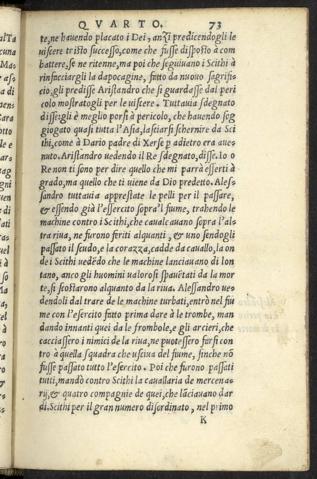 QVARTO. 73
te, ne hauendo placato i Dei, anzi predicendogli le
uiscere tristo successo, come che fusse disposto à com
battere, se ne ritenne, ma poi che seguiuano i Scithi à
rinfacciargli la dapocagine, fatto da nuouo sagrifi-
cio, gli predisse Aristandro che si guardasse dal peri
colo mostratogli per le uiscere. Tuttauia sdegnato
disse: gli è meglio porsi à pericolo, che hauendo sog
giogato quasi tutta l'Asia, lasciarsi schernire da Sci
thi, come à Dario padre di Xerse p adietro era aue-
nuto. Aristandro uedendo il Re sdegnato, disse. Io o
Re non ti sono per dire quello che mi parrà esserti à
grado, ma quello che ti uiene da Dio predetto. Ales-
sandro tuttauia apprestate le pelli per il passare,
& essendo già l'essercito sopra'l fiume, trahendo le
machine contro i Scithi, che caualcauano sopra l'al-
tra riua, ne furono feriti alquanti, & uno sendogli
passato il scudo, e la corazza, cadde da cauallo, la on
de i Scithi uedẽdo che le machine lanciauano di lon
tano, anco gli huomini ualorosi spauẽtati da la mor
te, si scostarono alquanto da la riua. Alessandro ue
dendoli dal trare de le machine turbati, entrò nel fiu
me con l'esercito fatto prima dare à le trombe, man
dando innanti quei da le frombole, e gli arcieri, che
cacciassero i nimici de la riua, ne puotessero farsi con
tro à quella squadra che usciua del fiume, finche nõ
fusse passato tutto l'esercito. Poi che furono passati
tutti, mandò contro Scithi la cauallaria de mercena-
rij, & quatro compagnie de quei, che lãciauano dar
di. Scithi per il gran numero disordinato, nel primo
K